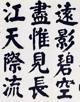 遠影碧空
盡惟見長
江天際流